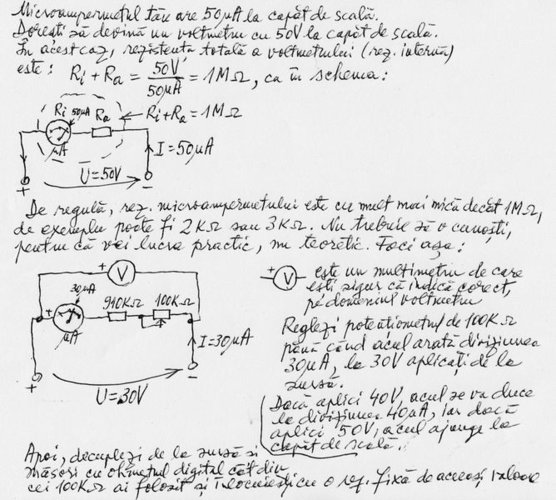 Microampermetrul tău are 50µA la capăt de scală.
Dorești să devină un voltmetru cu 50V la capăt de scală.
În acest caz, rezistența totală a voltmetrului (rez. internă)
este: Ri + Ra = 50V / 50µA = 1MΩ, ca în schema:
Ri 50µA Ra ← Ri+Ra = 1MΩ
µA
I = 50µA
+ U = 50V −
De regulă, rez. microampermetrului este cu mult mai mică decât 1MΩ,
de exemplu poate fi 2KΩ sau 3KΩ. Nu trebuie să o cunoști,
pentru că vei lucra practic, nu teoretic. Faci așa:
+ V
30µA 910KΩ 100KΩ
+ µA
I = 30µA
+ U = 30V −
+ V este un multimetru de care
ești sigur că indică corect,
pe domeniul voltmetru
Reglezi potențiometrul de 100KΩ
până când acul arată diviziunea
30µA, la 30V aplicați de la
sursă.
Dacă aplici 40V, acul se va duce
la diviziunea 40µA, iar dacă
aplici 50V, acul ajunge la
capăt de scală.
Apoi, decuplezi de la sursă și
măsori cu ohmetrul digital cât din
cei 100KΩ ai folosit și îl înlocuiești cu o rez. fixă de aceeași valoare